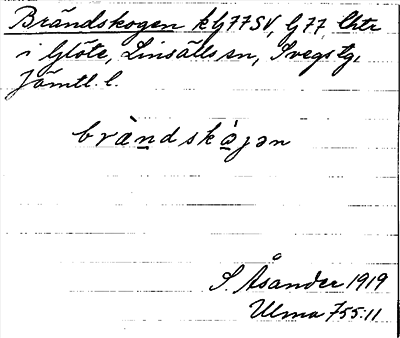 Brändskogen k G77SV, G77 Chtr
i Glöte, Linsälls sn, Svegs tg,
Jämtl. l.
bràndskàjən
S. Åsander 1919
Ulma 755:11